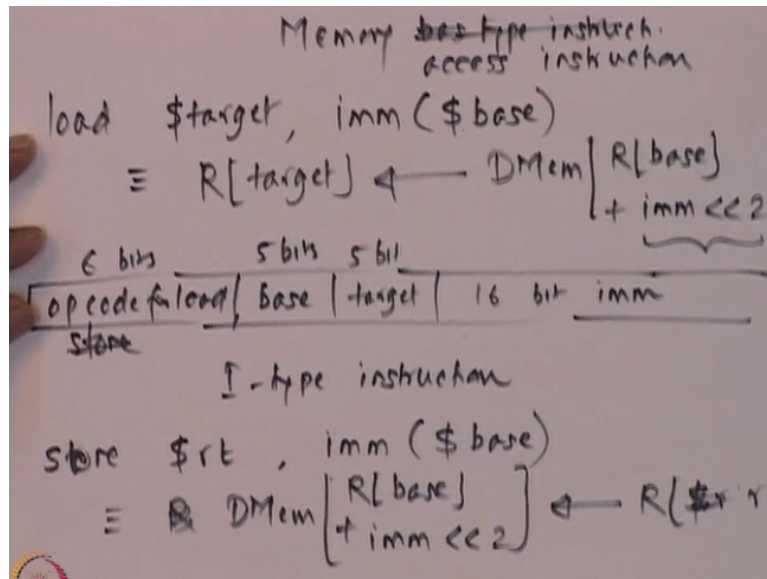 Memory bas type instruch.
access instruchon
load $target, imm ($base)
≡ R[target] ← DMem[R[base]
+ imm << 2
6 bits 5 bits 5 bit
opcode for load | base | target | 16 bit imm
store
I-type instruchon
store $rt , imm ($base)
≡ DMem[R[base]
+ imm << 2] ← R[